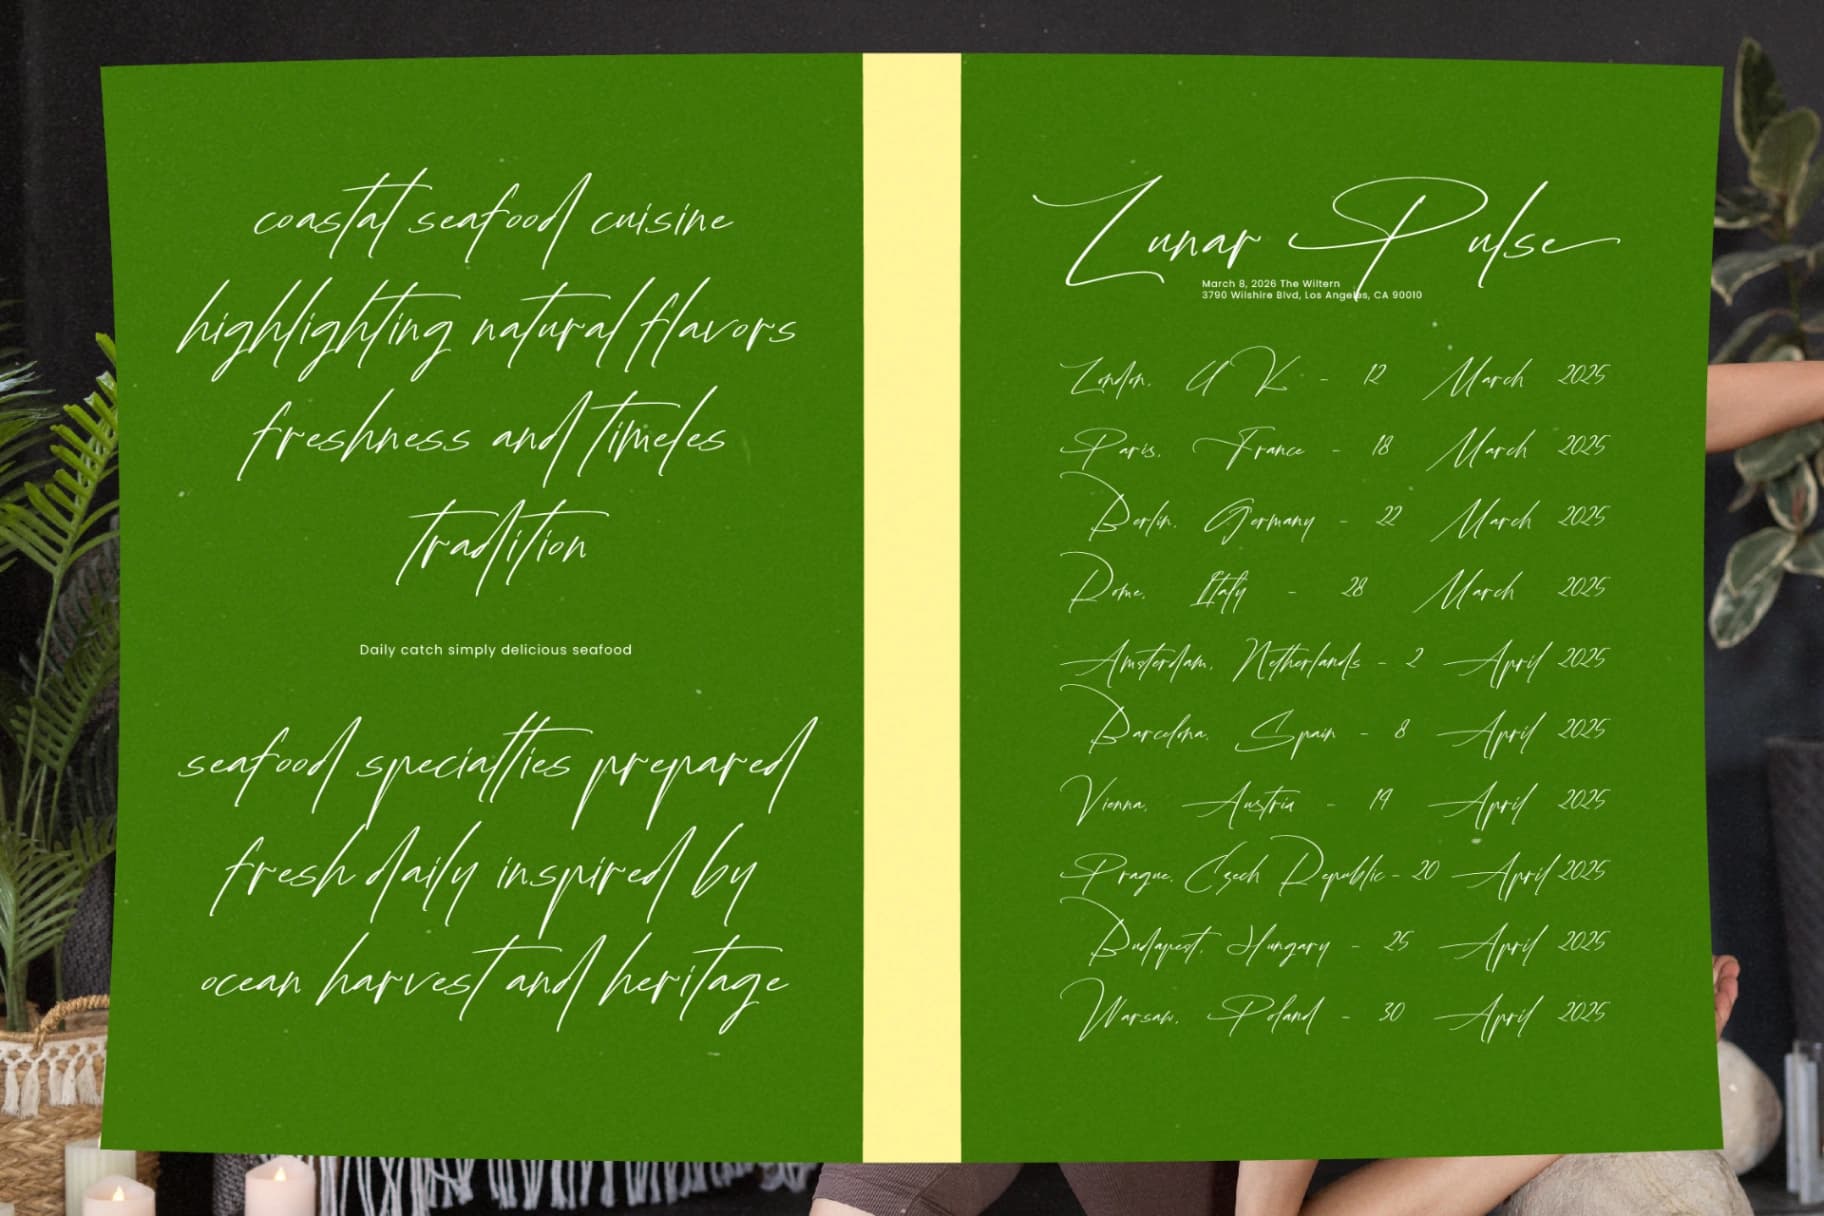 coastal seafood cuisine
highlighting natural flavors
freshness and timeles
tradition
Daily catch simply delicious seafood
seafood specialties prepared
fresh daily inspired by
ocean harvest and heritage
Lunar Pulse
March 8, 2026 The Wiltern
3790 Wilshire Blvd, Los Angeles, CA 90010
London, UK - 12 March 2025
Paris, France - 18 March 2025
Berlin, Germany - 22 March 2025
Rome, Italy - 28 March 2025
Amsterdam, Netherlands - 2 April 2025
Barcelona, Spain - 8 April 2025
Vienna, Austria - 14 April 2025
Prague, Czech Republic - 20 April 2025
Budapest, Hungary - 25 April 2025
Warsaw, Poland - 30 April 2025